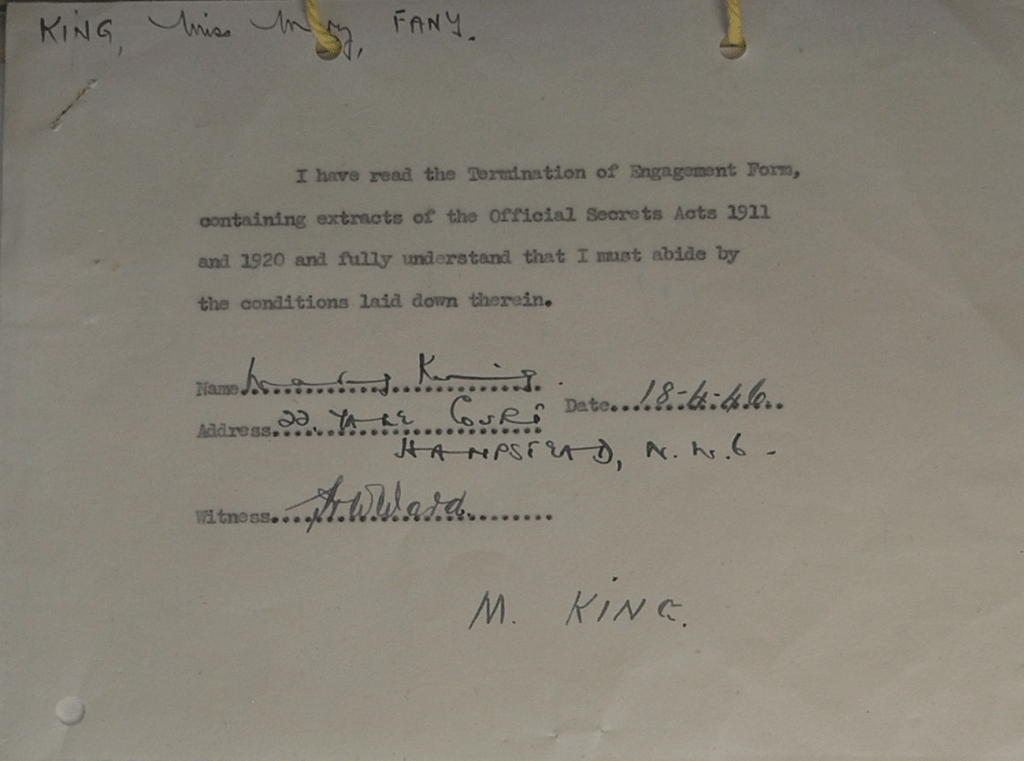 KING, Miss Mary, FANY.
I have read the Termination of Engagement Form,
containing extracts of the Official Secrets Acts 1911
and 1920 and fully understand that I must abide by
the conditions laid down therein.
Name Mary King
Date 18-4-46
Address 22, Court
HAMPSTEAD, N.W.6-
Witness Ward
M. KING.